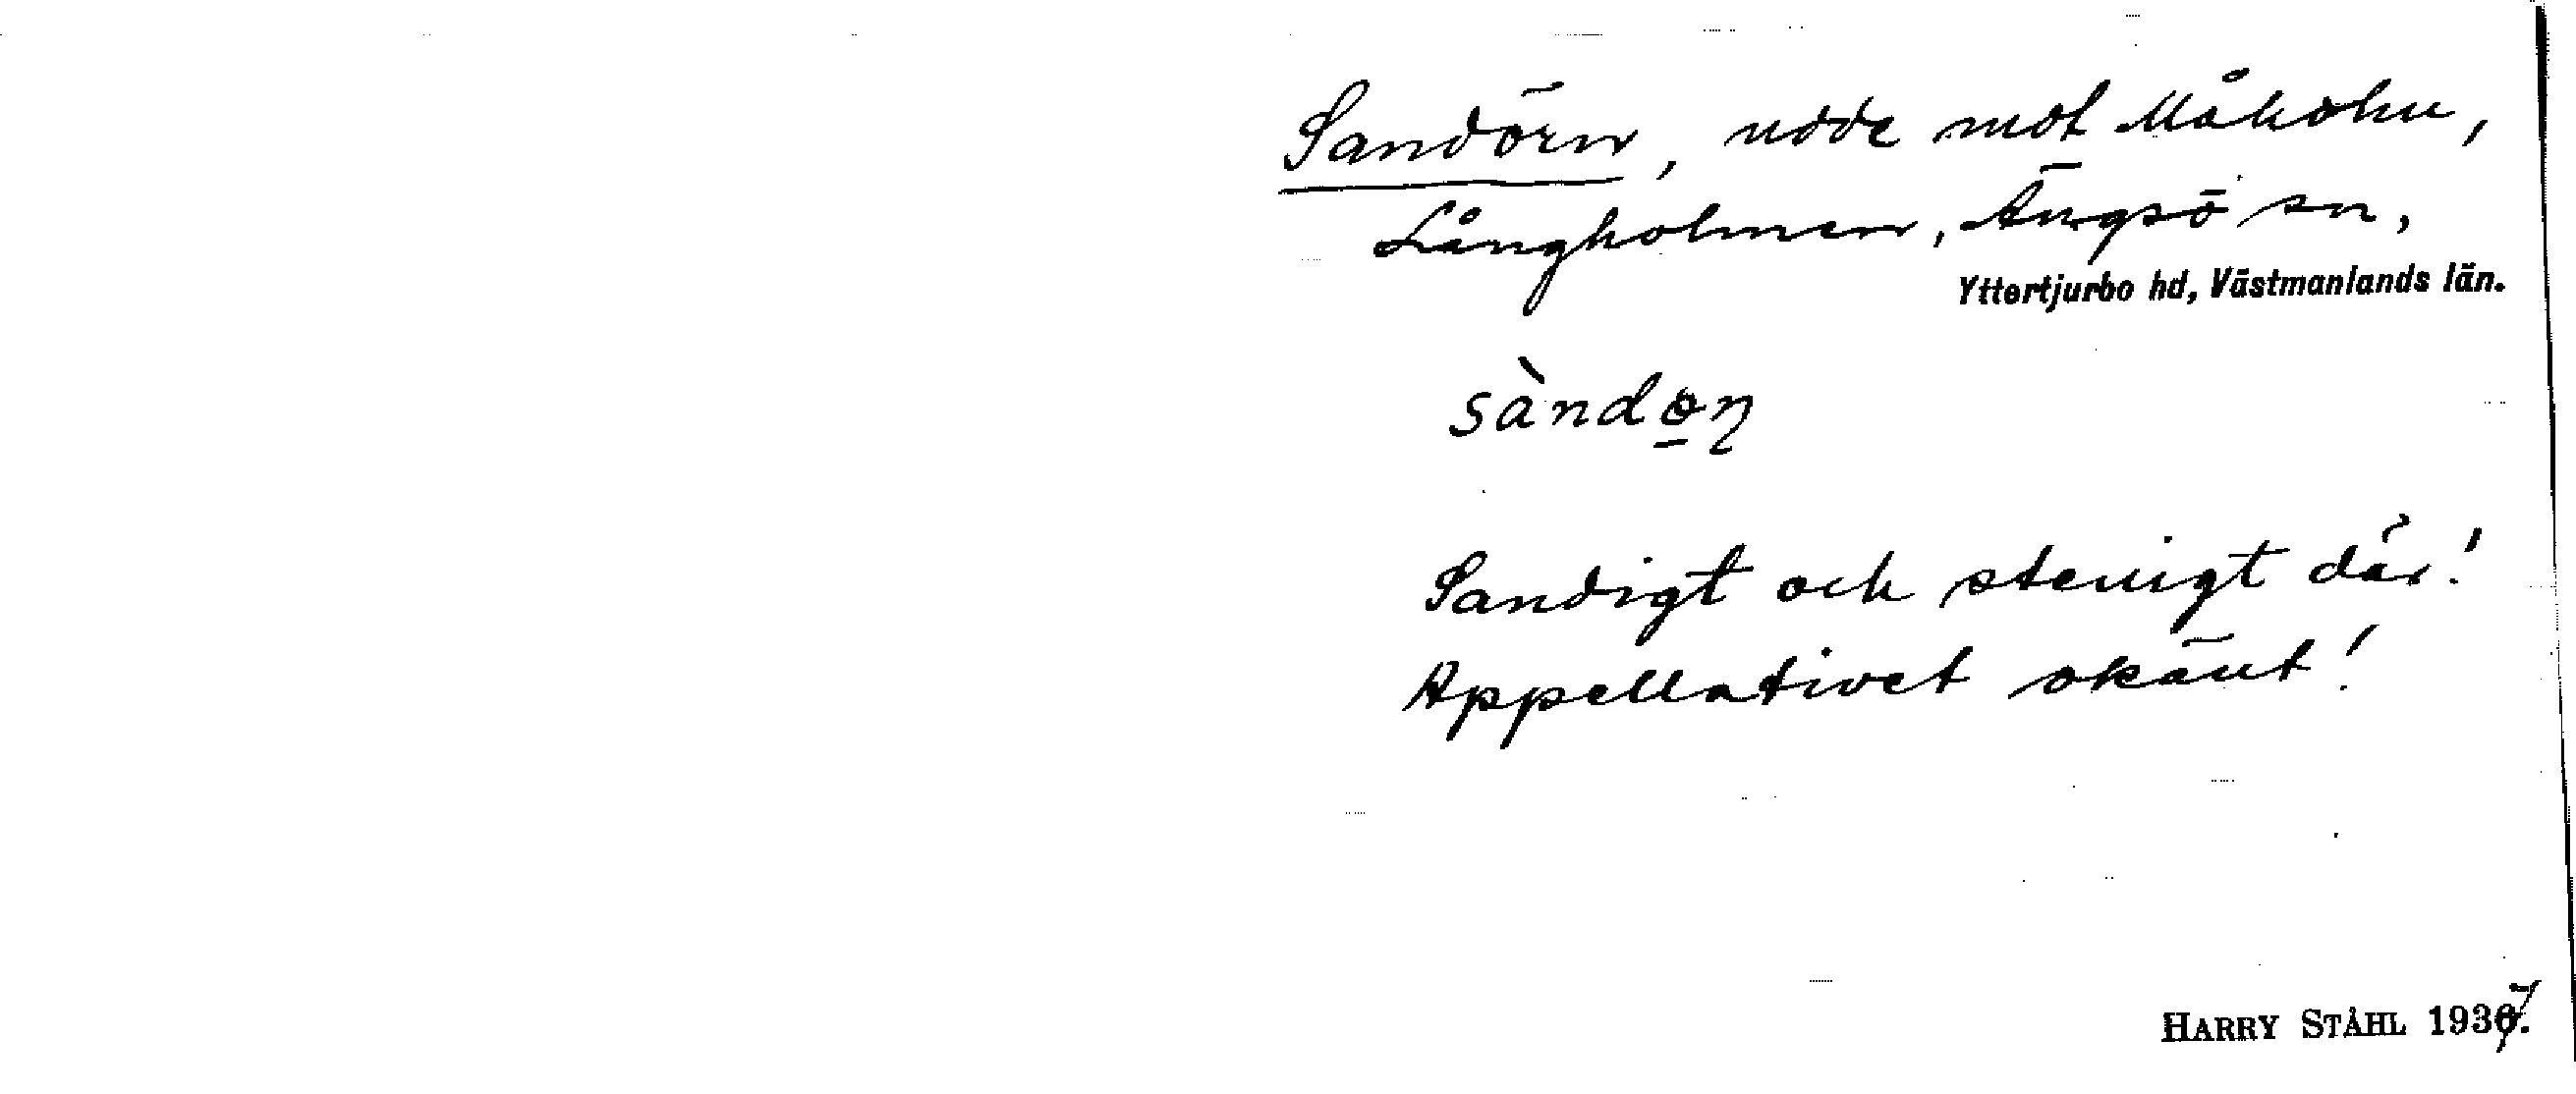 Sandörn, udde mot Måkohn,
Långholmen, Ängsö sn,
Yttertjurbo hd, Västmanlands län.
sàndo̲ɳ
Sandigt och stenigt där!
Appellativet okänt!
HARRY STÅHL 1937.